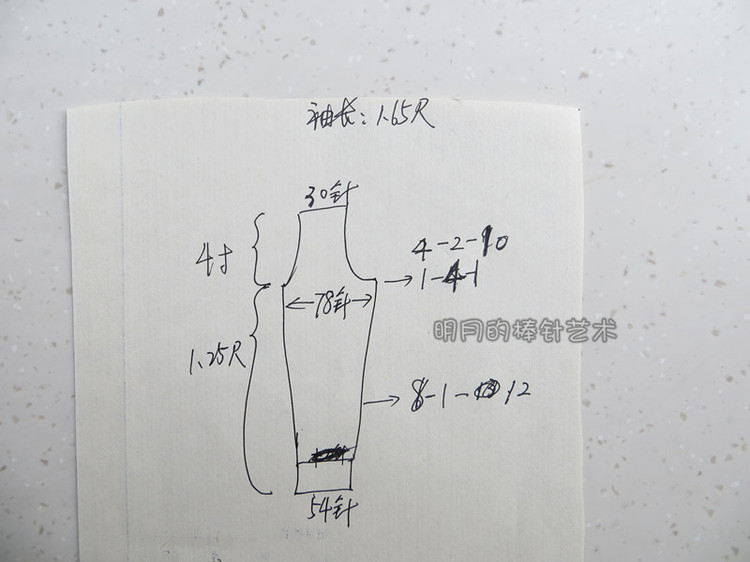 袖长：1.65尺
30针
4寸
4-2-10
1-4-1
78针
明月的棒针艺术
1.25尺
8-1-12
54针